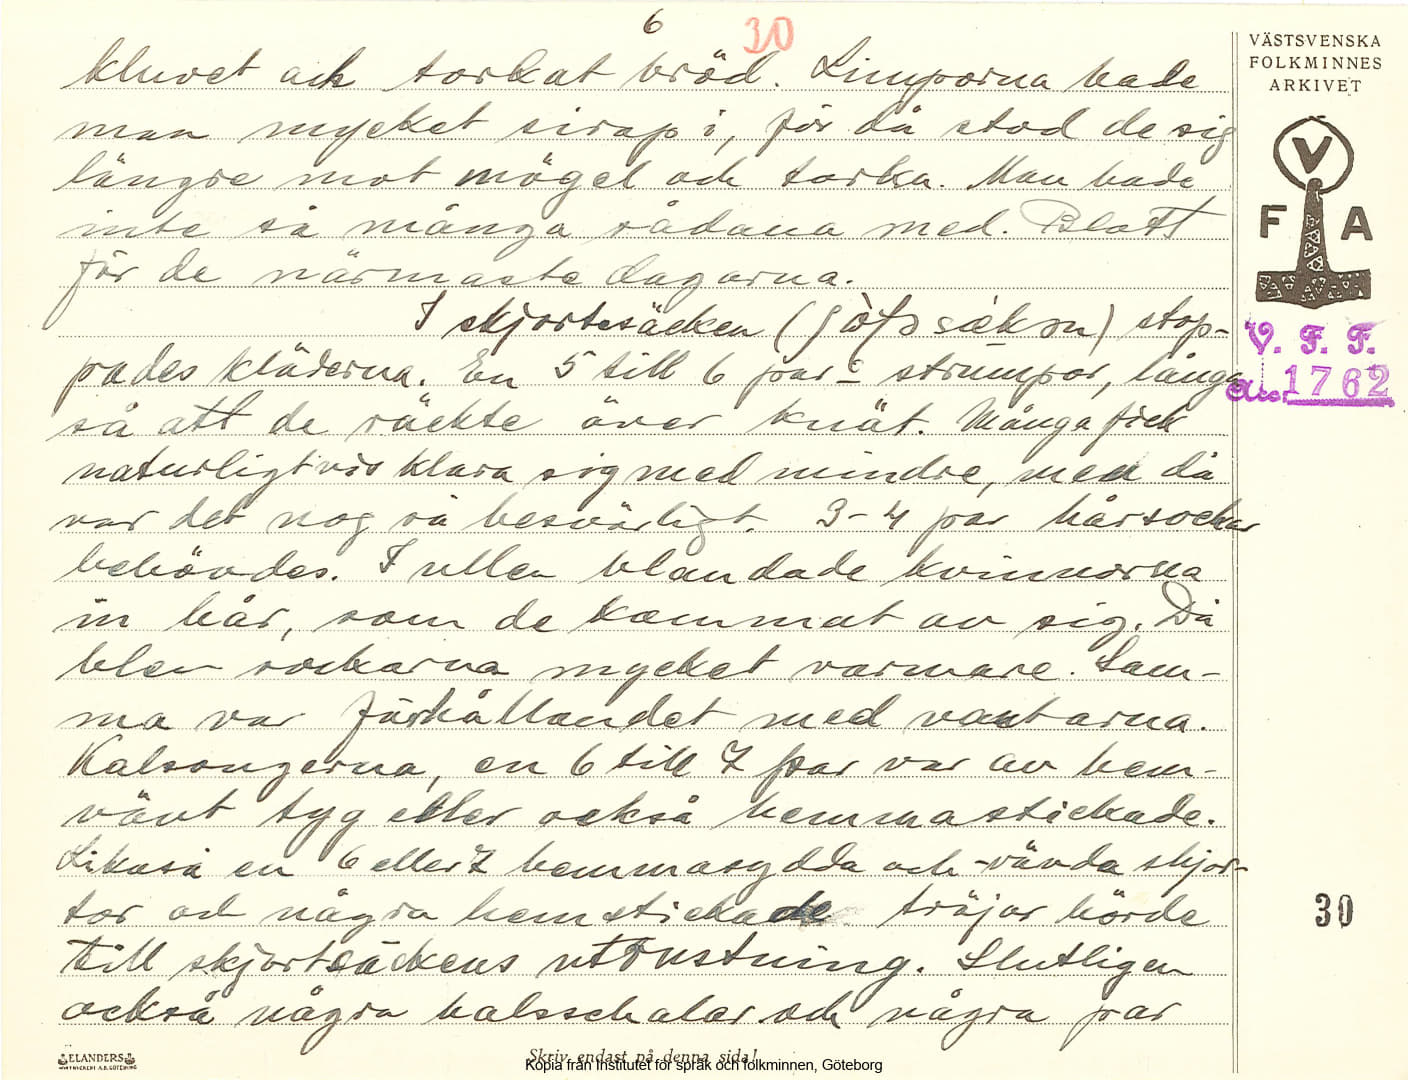 6
30
kluvet och torkat bröd. Limporna hade
man mycket sirap i, för då stod de sig
längre mot mögel och torka. Man hade
inte så många sådana med. Blott
för de närmaste dagarna.
I skjortesäcken ( ) stop-
pades kläderna. En 5 till 6 par - strumpor, långa
så att de räckte över knät. Många fick
naturligtvis klara sig med mindre, men då
var det nog så besvärligt. 3-4 par hårsockar
behövdes. I ullen blandade kvinnorna
in hår, som de kammat av sig. Då
blev sockarna mycket varmare. Sam-
ma var förhållandet med vantarna.
Kalsongerna, en 6 till 7 par var av hem-
vävt tyg eller också hemmastickade.
Likaså en 6 eller 7 hemmasydda och -vävda skjor-
tor och några hemstickade tröjor hörde
till skjortsäckens utrustning. Slutligen
också några halsschalar och några par
VÄSTSVENSKA
FOLKMINNES
ARKIVET
V
F A
V. F. F.
Acc. 1762
30
ELANDERS
BOKTRYCKERI A.B. GÖTEBORG
Skriv endast på denna sida!
Kopia från Institutet för språk och folkminnen, Göteborg